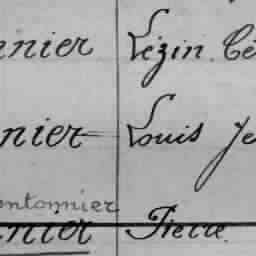 nier Lézin Cé
nier Louis Je
ontonnier
nier Pierre